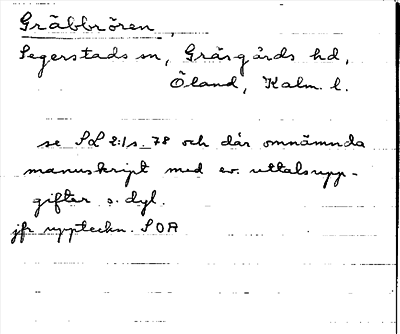 Gräbbrören,
Segerstads sn, Gräsgårds hd,
Öland, Kalm. l.
se SL 2:1 s. 78 och där omnämnda
manuskript med ev. uttalsupp-
gifter o. dyl.
jfr uppteckn. SOA